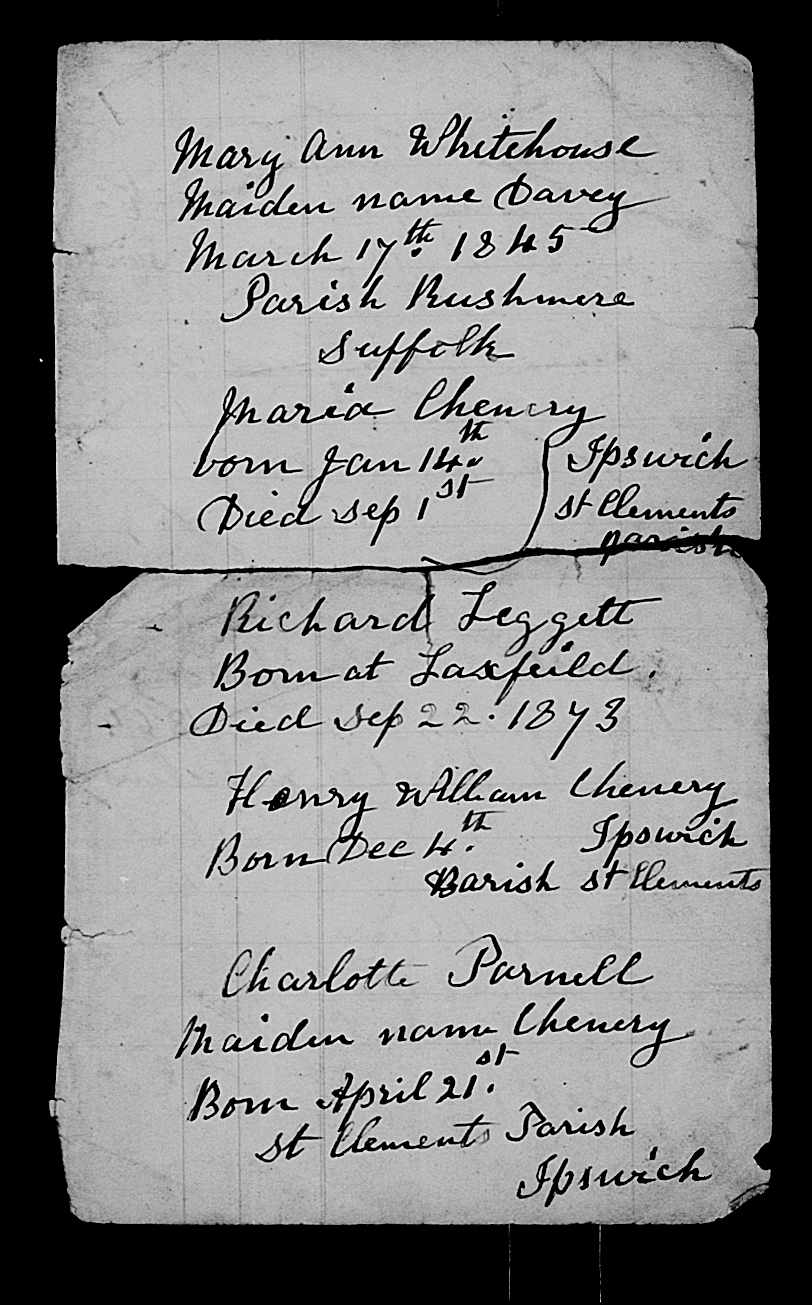 Mary Ann Whitehouse
Maiden name Davey
March 17th. 1845
Parish Rushmere
Suffolk
Maria Chenery
born Jan 14th. Ipswich
Died Sep 1st St Clements
parish
Richard Leggett
Born at Laxfeild.
Died Sep 22. 1873
Henry William Chenery
Born Dec 4th. Ipswich
Parish St Clements
Charlotte Parnell
Maiden name Chenery
Born April 21st.
St Clements Parish
Ipswich